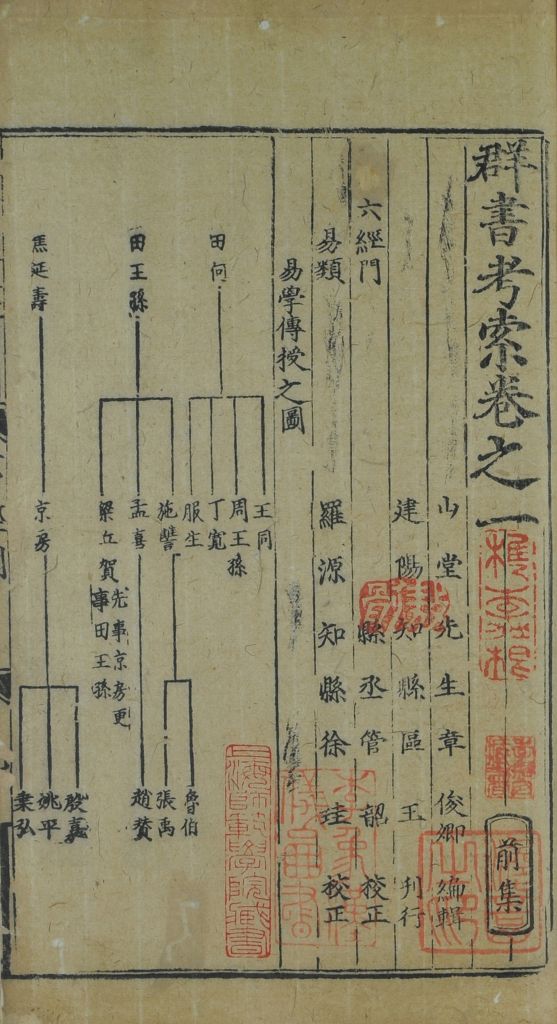 群書考索卷之一
前集
山堂先生章俊卿編輯
建陽知縣區玉刊行
縣丞管韶校正
羅源知縣徐珪校正
六經門
易類
易學傳授之圖
田何
王同
周王孫
丁寬
服生
田王孫
施讐
孟喜
梁丘賀先事京房更
事田王孫
魯伯
張禹
趙賛
焦延壽
京房
殷嘉
姚平
乗弘
上海師範學院藏書